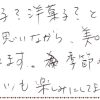 子？洋菓子？と
思いながら、美
ます。季節
いも楽しみにしてま